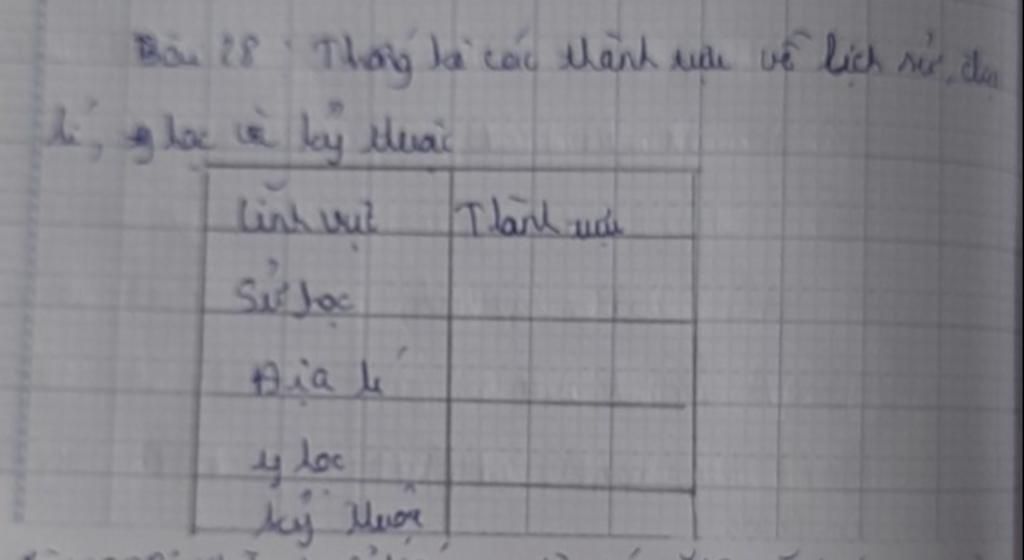 Bài 28: Thống kê các thành tựu về lịch sử, địa
lí, y học và kỹ thuật
Lĩnh vực Thành tựu
Sử học
Địa lí
y học
kỹ thuật